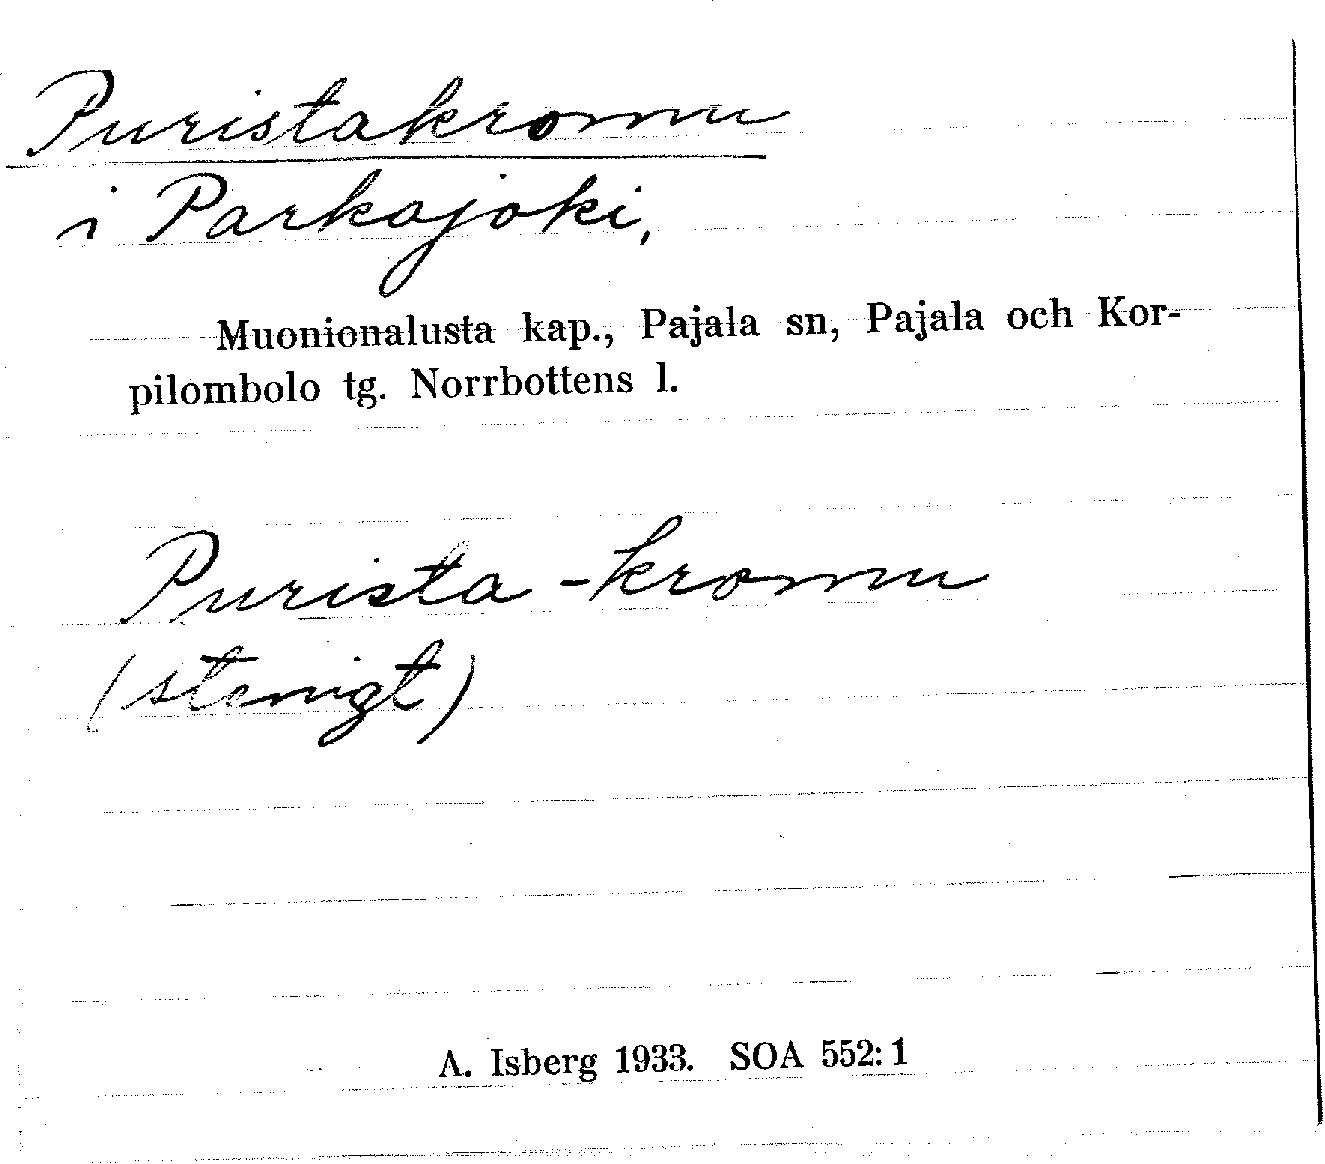 Puristakromu
i Parkajoki,
Muonionalusta kap., Pajala sn, Pajala och Kor-
pilombolo tg. Norrbottens l.
Purista-kromu
(stenigt)
A. Isberg 1933. SOA 552:1